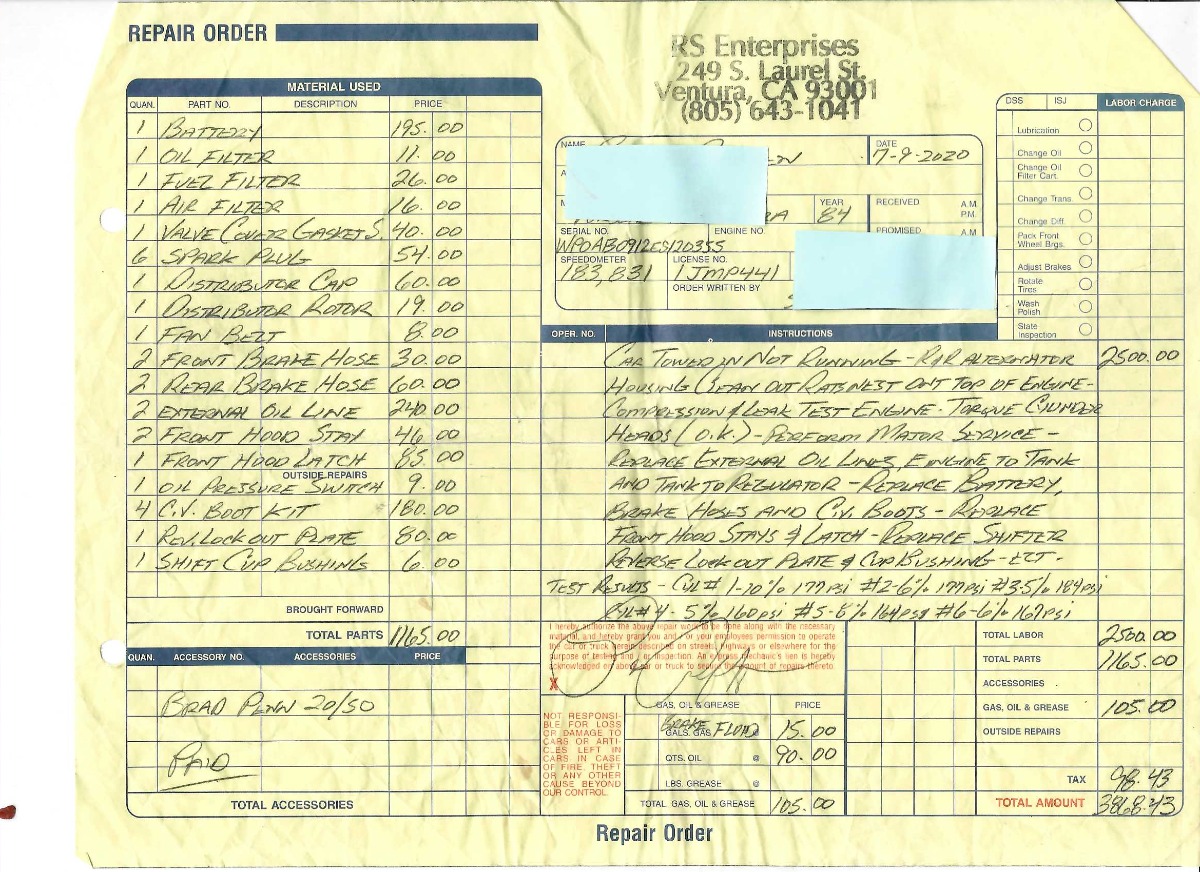 REPAIR ORDER
RS Enterprises
249 S. Laurel St.
Ventura, CA 93001
(805) 643-1041
MATERIAL USED
QUAN. PART NO. DESCRIPTION PRICE
1 BATTERY 195.00
1 OIL FILTER 11.00
1 FUEL FILTER 26.00
1 AIR FILTER 16.00
1 VALVE COVER GASKETS. 40.00
6 SPARK PLUG 54.00
1 DISTRIBUTOR CAP 60.00
1 DISTRIBUTOR ROTOR 19.00
1 FAN BELT 8.00
2 FRONT BRAKE HOSE 30.00
2 REAR BRAKE HOSE 60.00
2 EXTERNAL OIL LINE 240.00
2 FRONT HOOD STAY 46.00
1 FRONT HOOD LATCH 85.00
OUTSIDE REPAIRS
1 OIL PRESSURE SWITCH 9.00
4 C.V. BOOT KIT 180.00
1 REV. LOCK OUT PLATE 80.00
1 SHIFT CUP BUSHING 6.00
BROUGHT FORWARD
TOTAL PARTS 1165.00
QUAN. ACCESSORY NO. ACCESSORIES PRICE
BRAD PENN 20/50
PAID
TOTAL ACCESSORIES
NAME
DATE
7-9-2020
YEAR
84
RECEIVED A.M.
P.M.
SERIAL NO. ENGINE NO. PROMISED A.M
WP0AB0912ES120355
SPEEDOMETER LICENSE NO.
183,831 1JMP441
ORDER WRITTEN BY
DSS ISJ LABOR CHARGE
Lubrication
Change Oil
Change Oil
Filter Cart.
Change Trans.
Change Diff.
Pack Front
Wheel Brgs.
Adjust Brakes
Rotate
Tires
Wash
Polish
State
Inspection
OPER. NO. INSTRUCTIONS
CAR TOWED IN NOT RUNNING - R&R ALTERNATOR 2500.00
HOUSING CLEAN OUT RATS NEST ONT TOP OF ENGINE -
COMPRESSION & LEAK TEST ENGINE. TORQUE CYLINDER
HEADS (O.K.) - PERFORM MAJOR SERVICE -
REPLACE EXTERNAL OIL LINES, ENGINE TO TANK
AND TANK TO REGULATOR - REPLACE BATTERY,
BRAKE HOSES AND C.V. BOOTS - REPLACE
FRONT HOOD STAYS & LATCH - REPLACE SHIFTER
REVERSE LOCK OUT PLATE & CUP BUSHING - ECT -
TEST RESULTS - CYL# 1-10% 177psi #2-6% 177psi #3-5% 184psi
CYL# 4 - 5% 160psi #5-8% 164psi #6-6% 167psi
I hereby authorize the above repair work to be done along with the necessary
material, and hereby grant you and / or your employees permission to operate
the car or truck herein described on street, highways or elsewhere for the
purpose of testing and / or inspection. An express mechanic's lien is hereby
acknowledged on above car or truck to secure the amount of repairs thereto.
X
NOT RESPONSI-
BLE FOR LOSS
OR DAMAGE TO
CARS OR ARTI-
CLES LEFT IN
CARS IN CASE
OF FIRE, THEFT
OR ANY OTHER
CAUSE BEYOND
OUR CONTROL.
GAS, OIL & GREASE PRICE
BRAKE FLUID 15.00
GALS. GAS @
QTS. OIL @ 90.00
LBS. GREASE @
TOTAL GAS, OIL & GREASE 105.00
TOTAL LABOR 2500.00
TOTAL PARTS 1165.00
ACCESSORIES
GAS, OIL & GREASE 105.00
OUTSIDE REPAIRS
TAX 98.43
TOTAL AMOUNT 3868.43
Repair Order